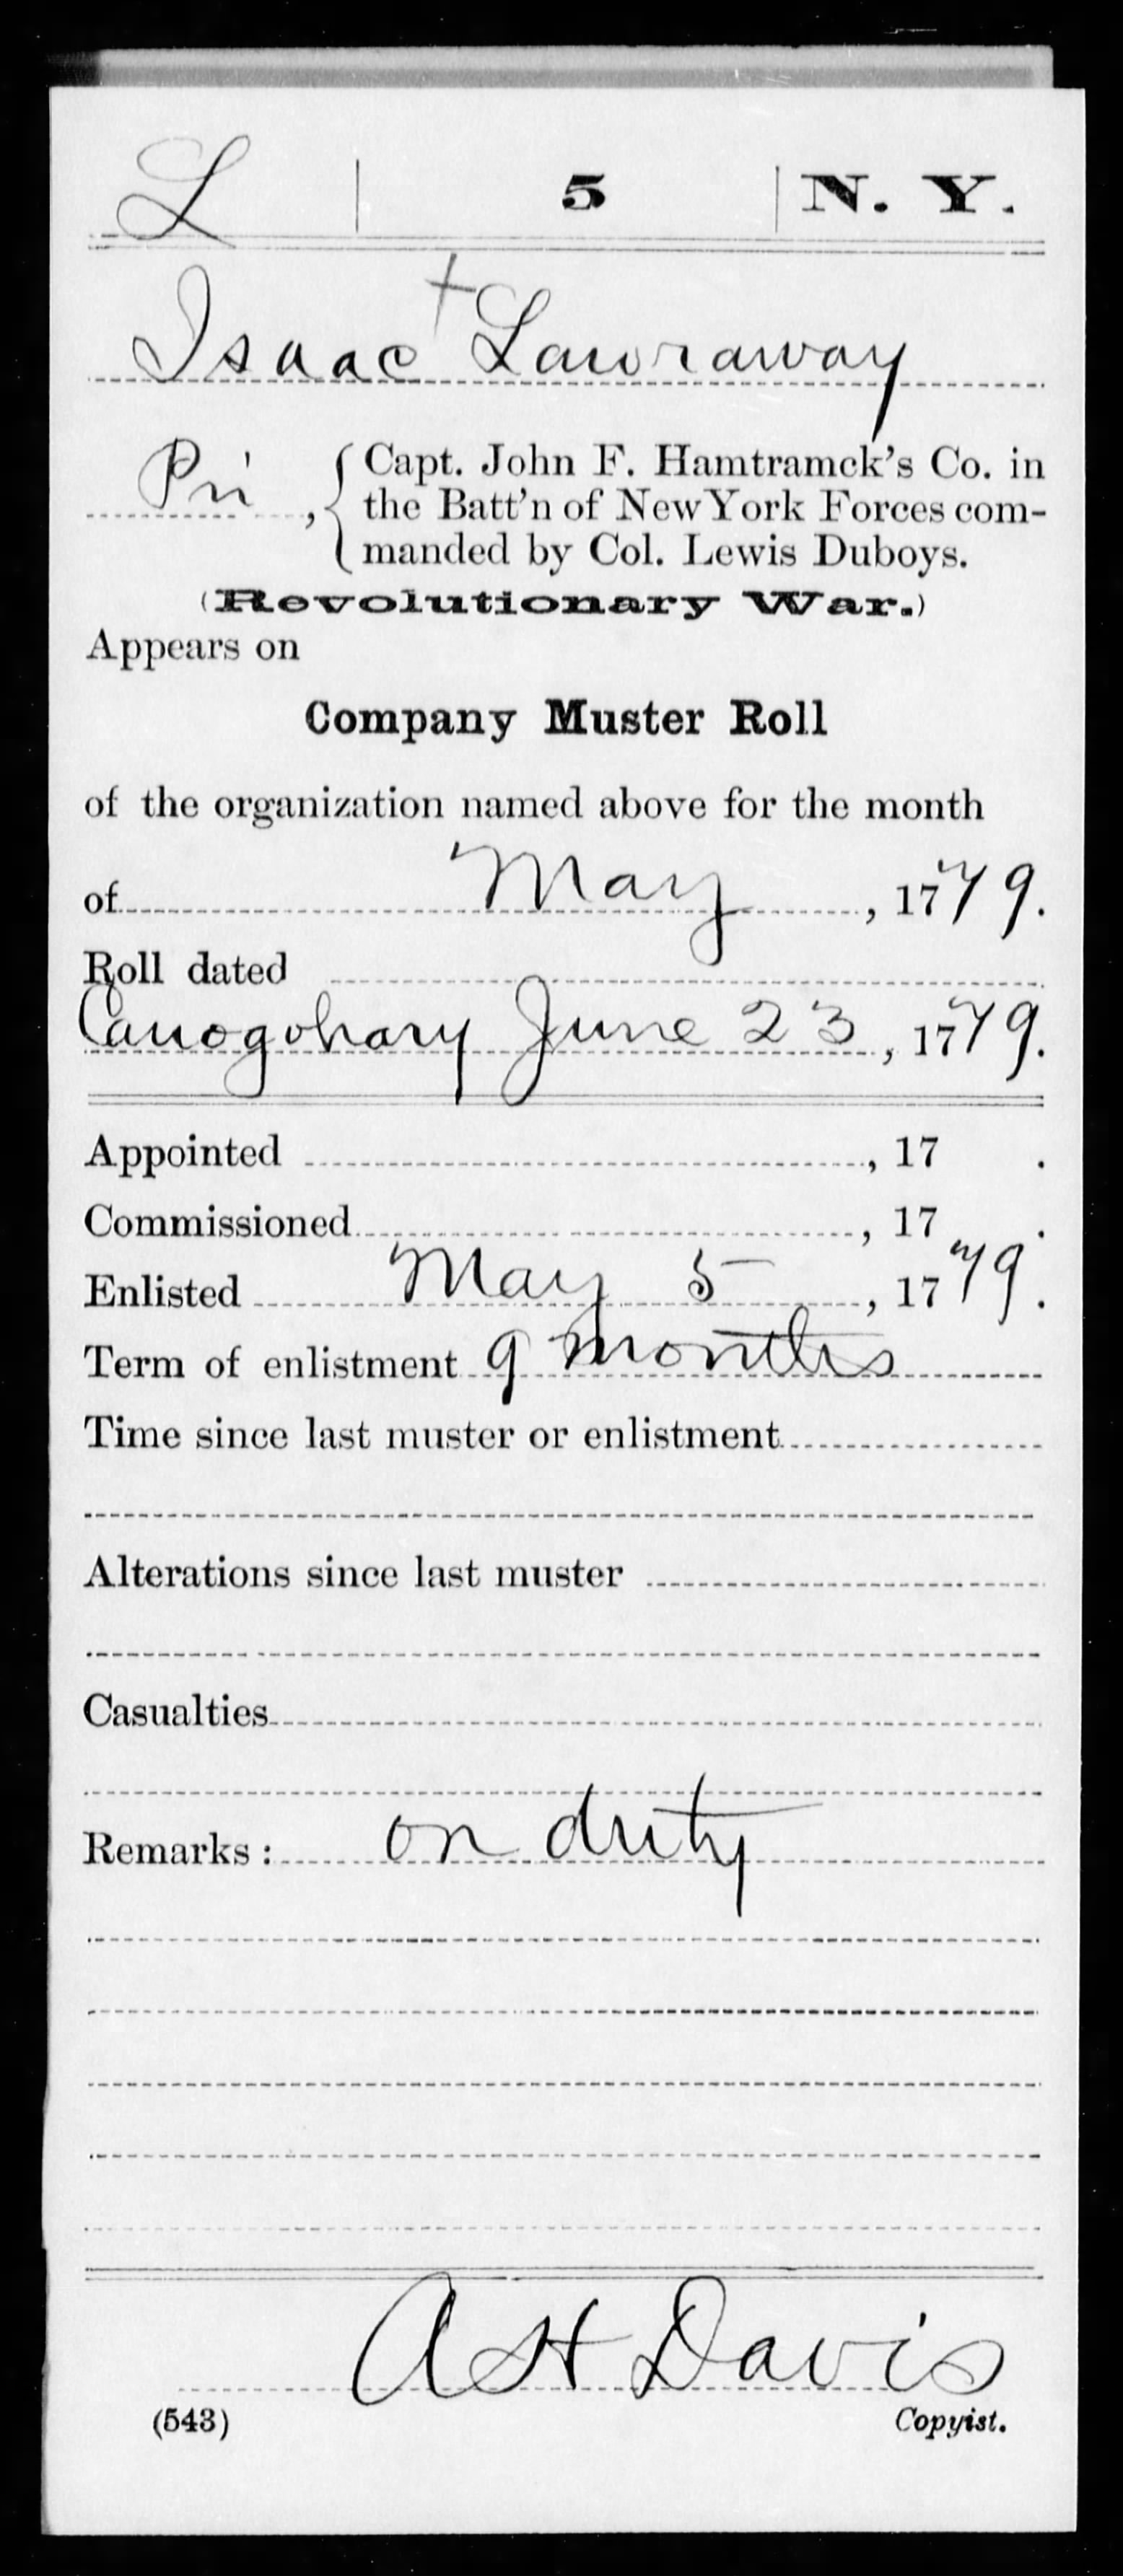 L 5 N. Y.
+
Isaac Lawraway
Pri', { Capt. John F. Hamtramck's Co. in
the Batt'n of New York Forces com-
manded by Col. Lewis Duboys.
(Revolutionary War.)
Appears on
Company Muster Roll
of the organization named above for the month
of May, 1779.
Roll dated
Canogohary June 23, 1779.
Appointed , 17 .
Commissioned , 17 .
Enlisted May 5, 1779.
Term of enlistment 9 months
Time since last muster or enlistment
Alterations since last muster
Casualties
Remarks: on duty
A H Davis
(543) Copyist.